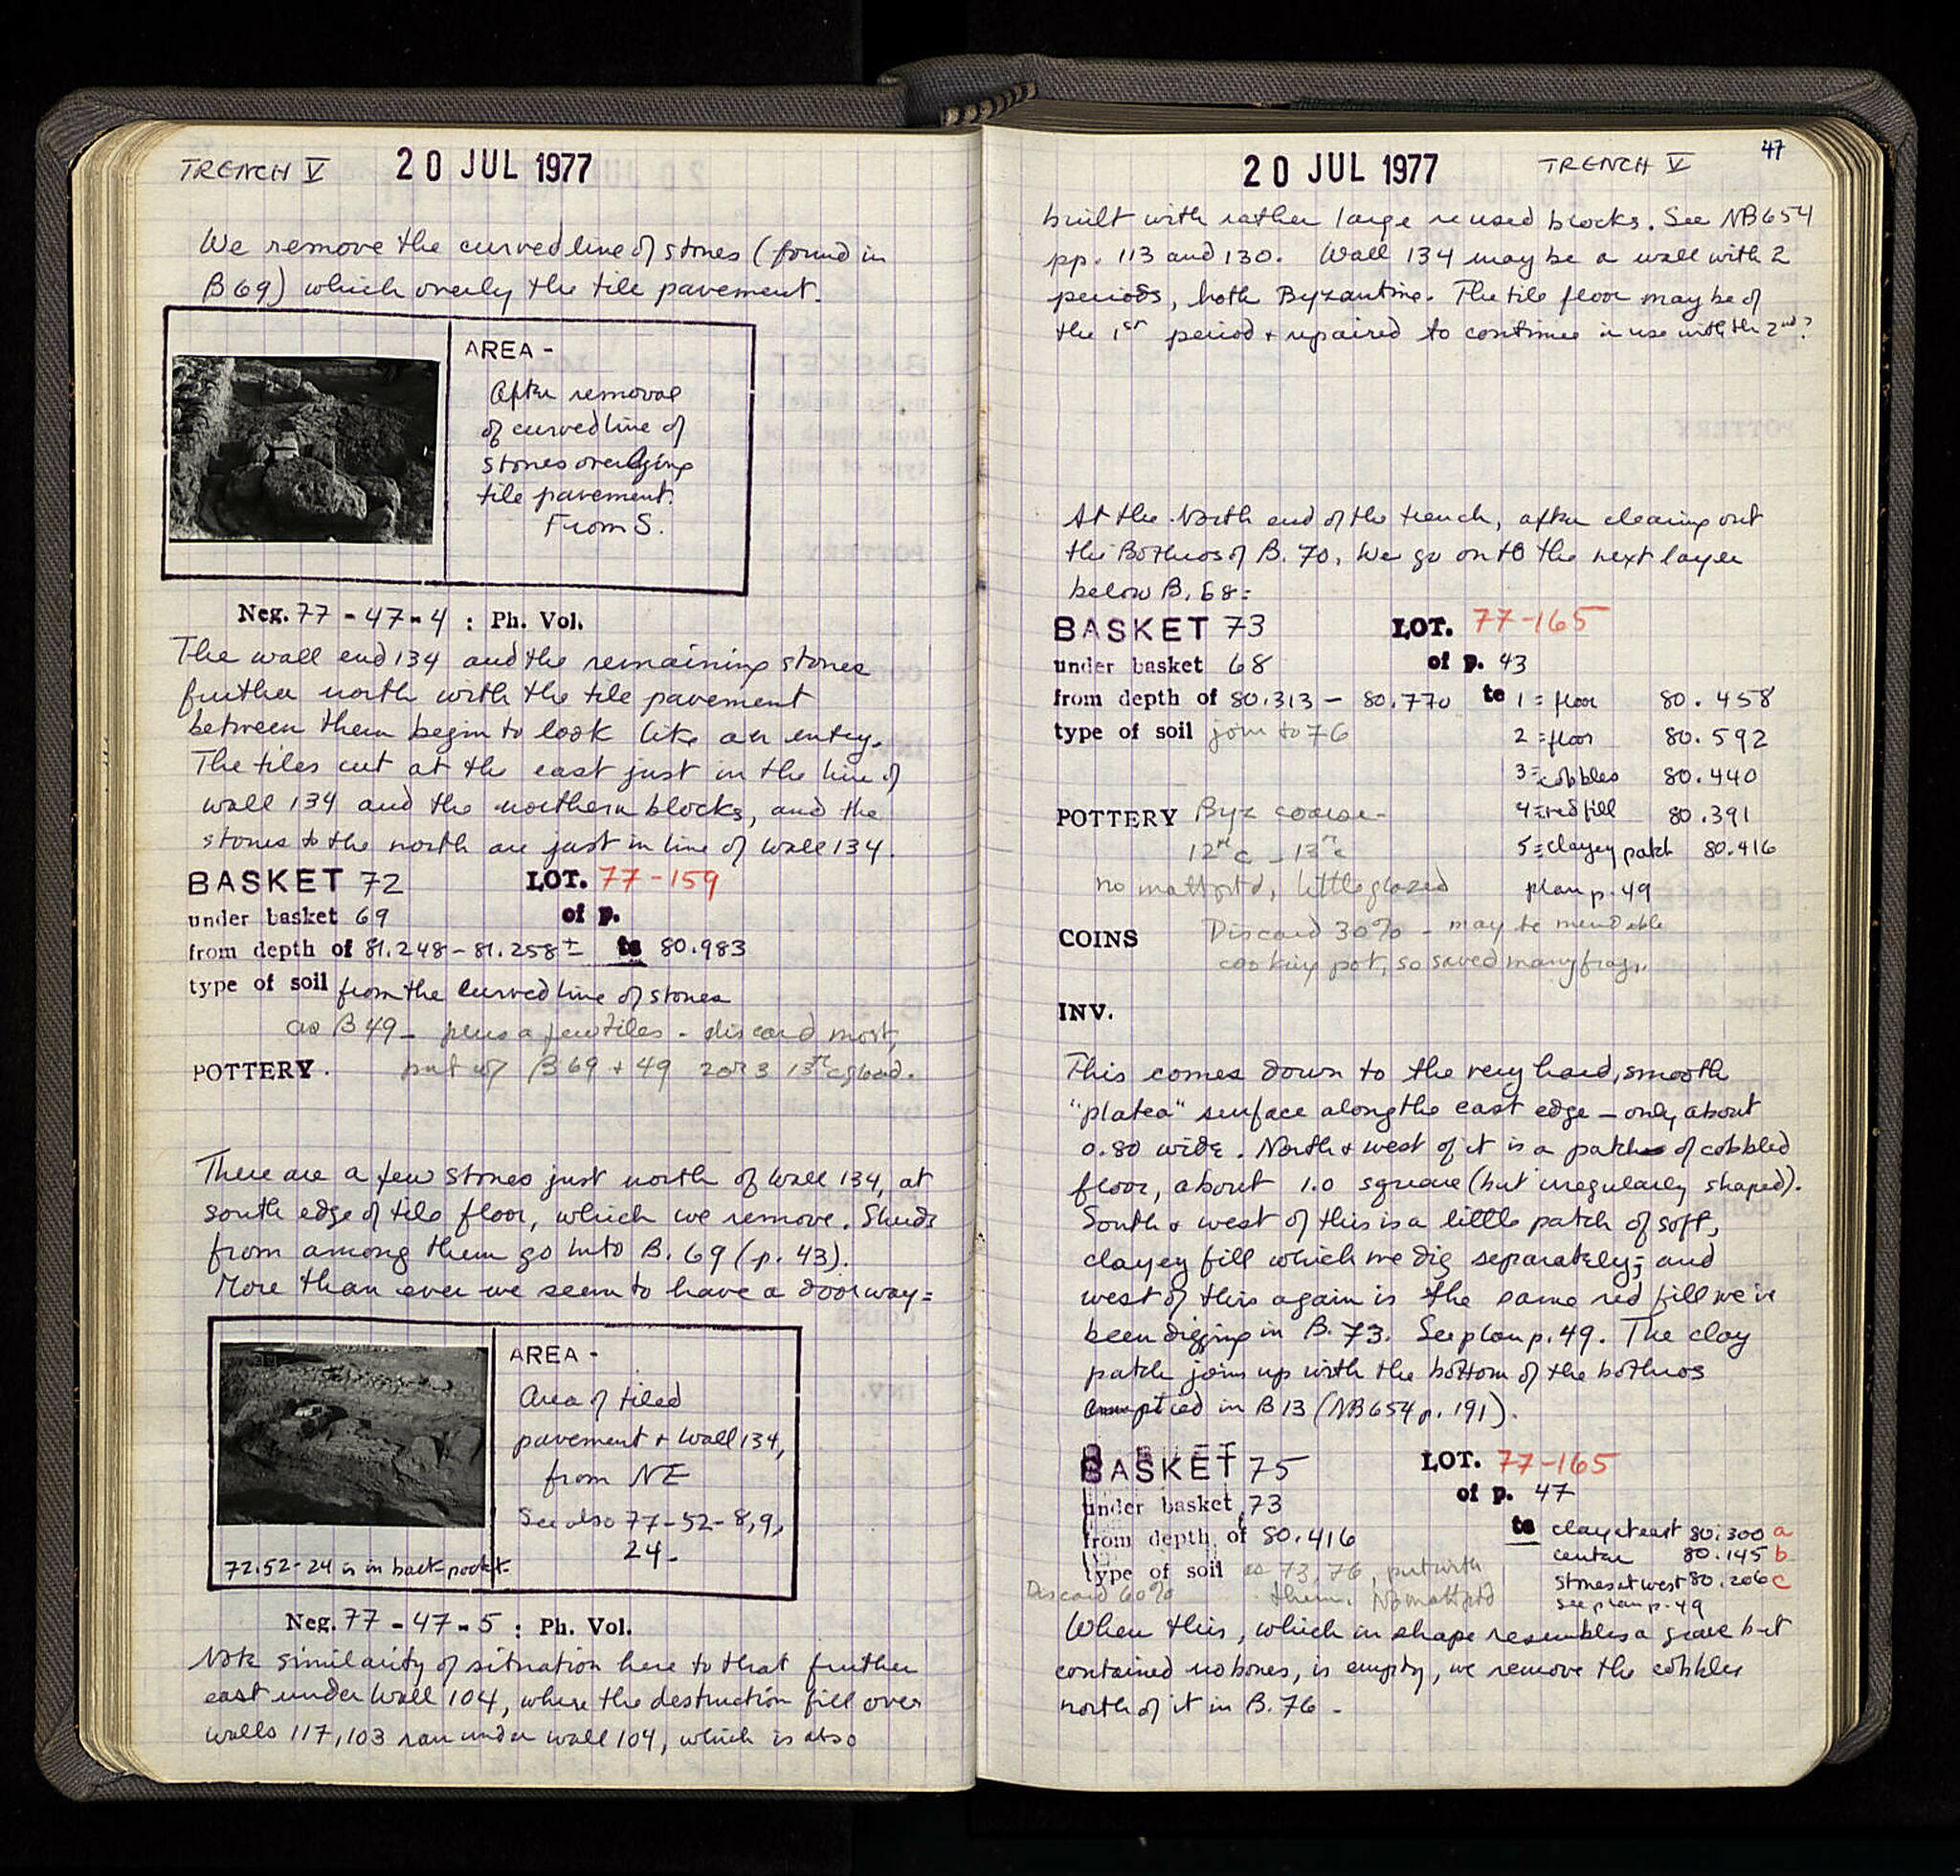 TRENCH V 20 JUL 1977
We remove the curved line of stones (found in
B 69) which overly the tile pavement.
AREA -
After removal
of curved line of
stones overlying
tile pavement.
From S.
Neg. 77 - 47 - 4 : Ph. Vol.
The wall end 134 and the remaining stones
further north with the tile pavement
between them begin to look like an entry.
The tiles cut at the east just in the line of
wall 134 and the northern blocks, and the
stones to the north are just in line of wall 134.
BASKET 72 LOT. 77-159
under basket 69 of p.
from depth of 81.248 - 81.258 ± to 80.983
type of soil from the curved line of stones
as B 49 - plus a few tiles - discard most,
POTTERY. put w/ B 69 + 49 2 or 3 13th c glazed.
There are a few stones just north of wall 134, at
south edge of tile floor, which we remove. Sherds
from among them go into B. 69 (p. 43).
More than ever we seem to have a doorway =
AREA -
Area of tiled
pavement + wall 134,
from NE
See also 77-52-8,9,
24-
72.52-24 is in back-pocket-
Neg. 77 - 47 - 5 : Ph. Vol.
Note similarity of situation here to that further
east under wall 104, where the destruction fill over
walls 117, 103 ran under wall 104, which is also
47
20 JUL 1977 TRENCH V
built with rather large reused blocks. See NB 654
pp. 113 and 130. Wall 134 may be a wall with 2
periods, both Byzantine. The tile floor may be of
the 1st period + repaired to continue in use with the 2nd?
At the North end of the trench, after clearing out
the Bothros of B. 70, we go on to the next layer
below B. 68:
BASKET 73 LOT. 77-165
under basket 68 of p. 43
from depth of 80.313 - 80.770 to 1 = floor 80.458
type of soil join to 76 2 = floor 80.592
3 = cobbles 80.440
POTTERY Byz coarse- 4 = red fill 80.391
12th c - 13th c 5 = clayey patch 80.416
no matt ptd, little glazed plan p. 49
COINS Discard 30% - may be mendable
cooking pot, so saved many frags.
INV.
This comes down to the very hard, smooth
"platea" surface along the east edge - only about
0.80 wide. North + west of it is a patch of cobbled
floor, about 1.0 square (but irregularly shaped).
South + west of this is a little patch of soft,
clayey fill which we dig separately; and
west of this again is the same red fill we've
been digging in B. 73. See plan p. 49. The clay
patch joins up with the bottom of the bothros
emptied in B 13 (NB 654 p. 191).
BASKET 75 LOT. 77-165
under basket 73 of p. 47
from depth of 80.416 to clay at east 80.300 a
center 80.145 b
type of soil as 73, 76, put with stones at west 80.206 c
Discard 60% them. No matt ptd see plan p. 49
When this, which in shape resembles a grave but
contained no bones, is empty, we remove the cobbles
north of it in B. 76 -